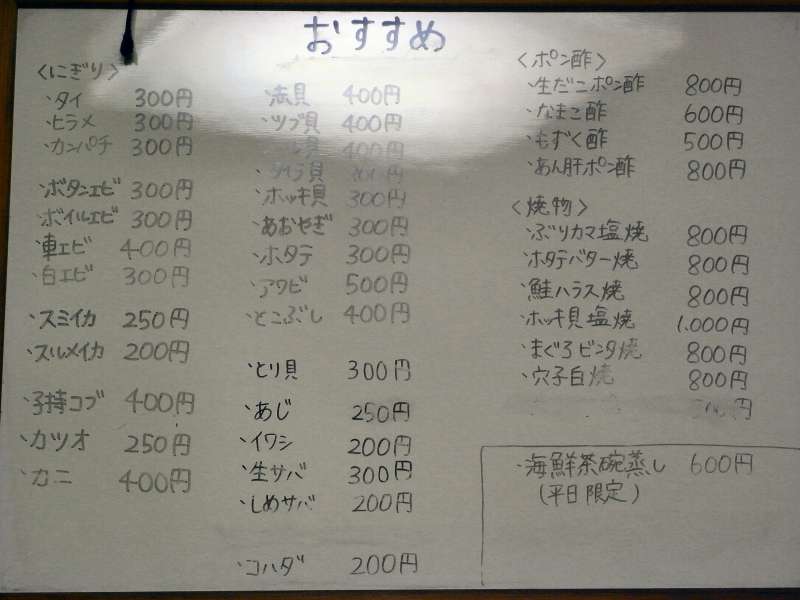 おすすめ
〈にぎり〉
・タイ 300円
・ヒラメ 300円
・カンパチ 300円
・ボタンエビ 300円
・ボイルエビ 300円
・車エビ 400円
・白エビ 300円
・スミイカ 250円
・スルメイカ 200円
・子持コブ 400円
・カツオ 250円
・カニ 400円
・赤貝 400円
・ツブ貝 400円
貝 400円
・タイラ貝 円
・ホッキ貝 300円
・あおやぎ 300円
・ホタテ 300円
・アワビ 500円
・とこぶし 400円
・とり貝 300円
・あじ 250円
・イワシ 200円
・生サバ 300円
・しめサバ 200円
・コハダ 200円
〈ポン酢〉
・生だこポン酢 800円
・なまこ酢 600円
・もずく酢 500円
・あん肝ポン酢 800円
〈焼物〉
・ぶりカマ塩焼 800円
・ホタテバター焼 800円
・鮭ハラス焼 800円
・ホッキ貝塩焼 1,000円
・まぐろビンタ焼 800円
・穴子白焼 800円
円
・海鮮茶碗蒸し 600円
(平日限定)